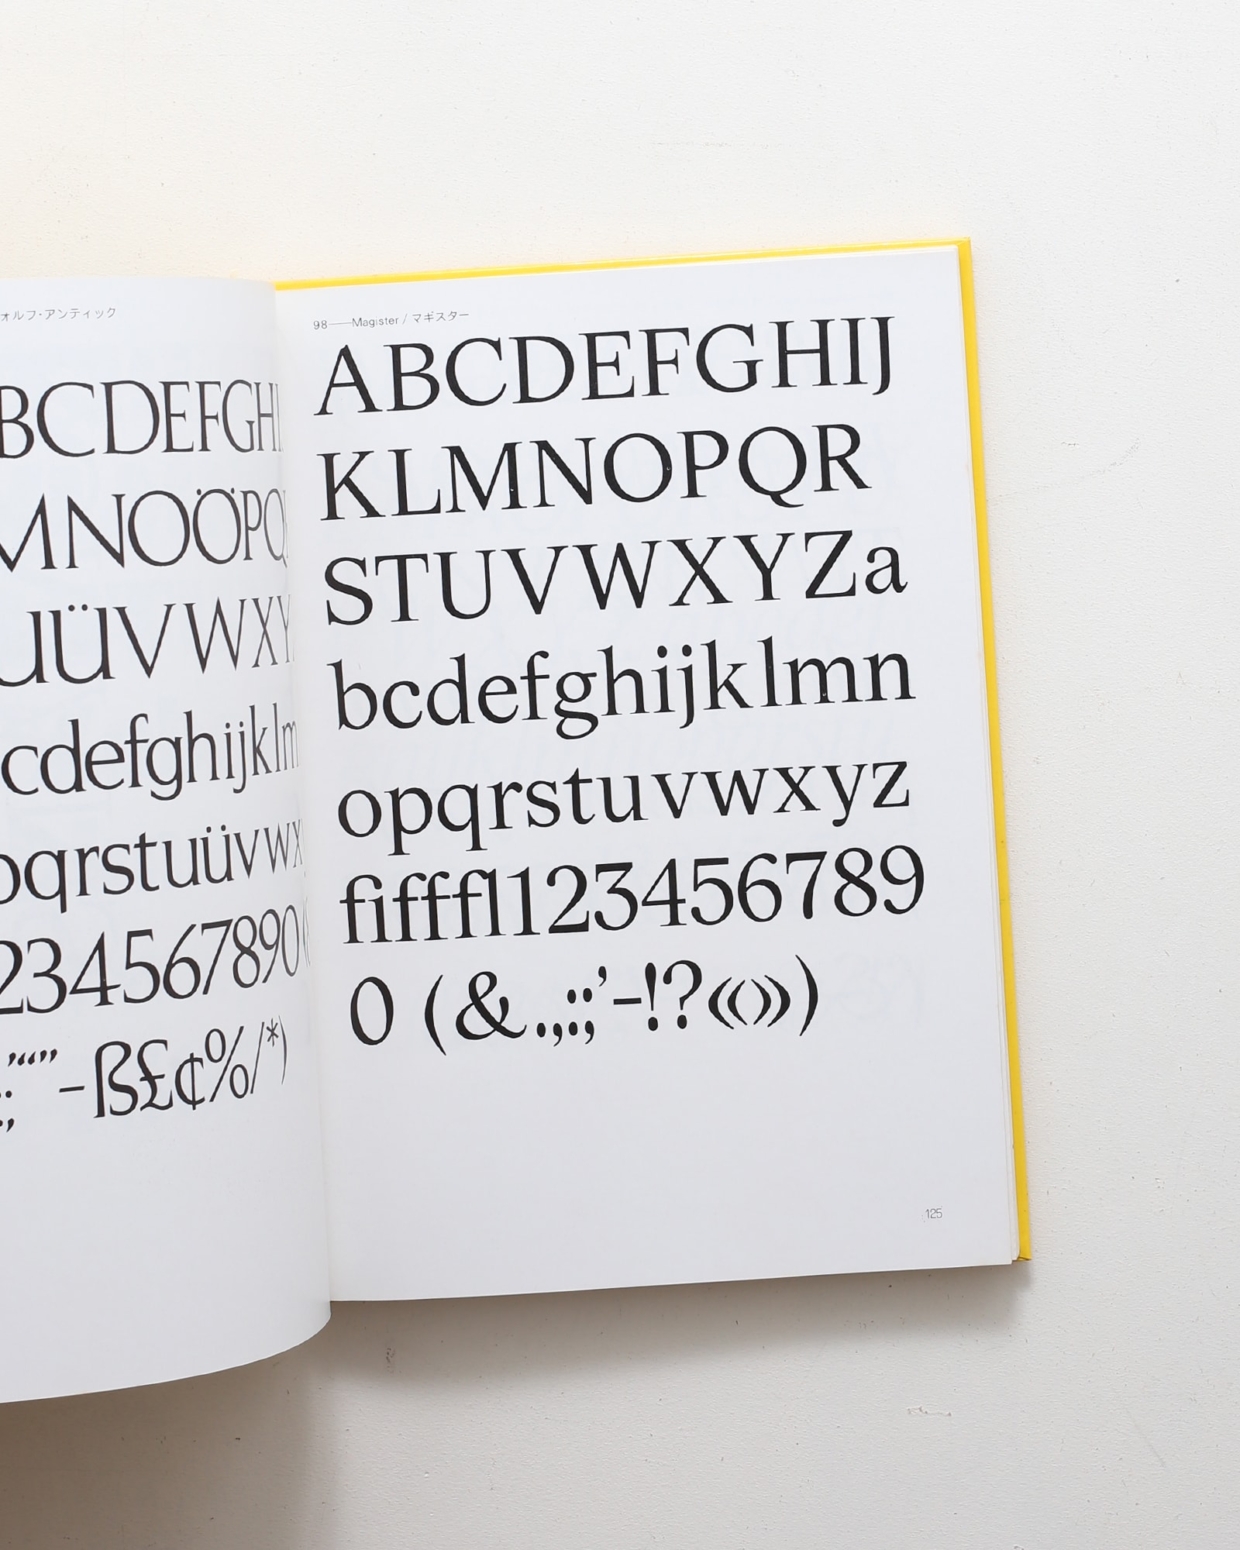 ォルフ・アンティック
BCDEFGHI
MNOÖPQ
UÜVWXY
cdefghijklm
pqrstuüvwx
234567890(
:;'“”-ß£¢%/*)
98——Magister / マギスター
ABCDEFGHIJ
KLMNOPQR
STUVWXYZa
bcdefghijklmn
opqrstuvwxyz
fiffffl123456789
0 (&.,:;’-!?«‹›»)
125